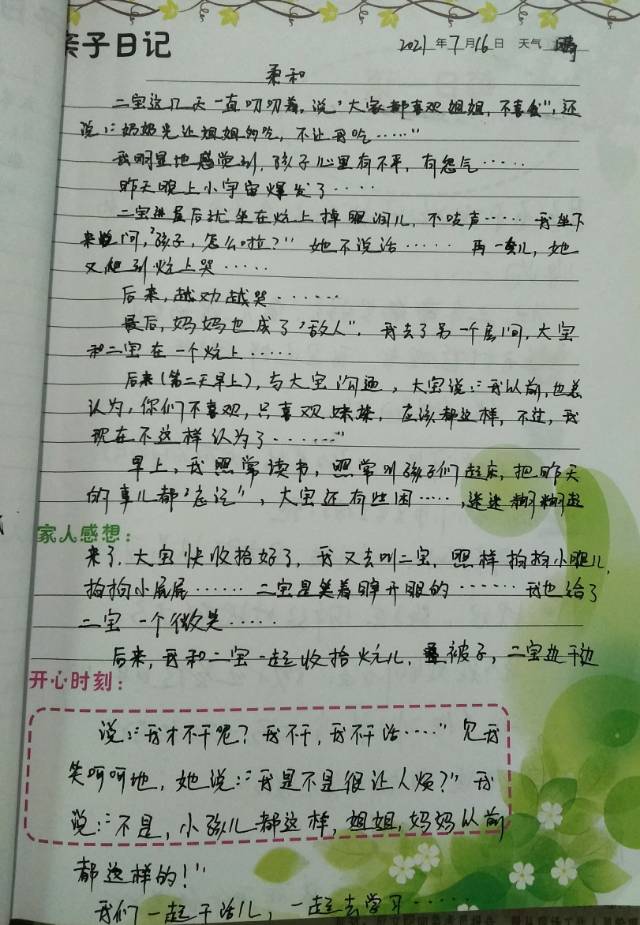 亲子日记
2021年7月16日 天气 晴
柔和
二宝这几天一直叨叨着,说"大家都喜欢姐姐,不喜我",还
说:"奶奶先让姐姐吃,不让我吃……"
我明显地感觉到,孩子心里有不平,有怨气……
昨天晚上小宇宙爆发了……
二宝进屋后就坐在炕上掉眼泪儿,不吱声……我坐下
来问,"孩子,怎么啦?"她不说话……再一会儿,她
又爬到炕上哭……
后来,越劝越哭……
最后,妈妈也成了"敌人",我去了另一个房间,大宝
和二宝在一个炕上……
后来(第二天早上),与大宝沟通,大宝说:"我以前,也总
认为,你们不喜欢,只喜欢妹妹,应该都这样,不过,我
现在不这样认为了……"
早上,我照常读书,照常叫孩子们起床,把昨天
的事儿都"忘记",大宝还有些困……,迷迷糊糊起
家人感想:
来了,大宝快收拾好了,我又去叫二宝,照样拍拍小腿儿,
拍拍小屁屁……二宝是笑着睁开眼的……我也给了
二宝一个微笑……
后来,我和二宝一起收拾炕儿,叠被子,二宝边干边
开心时刻:
说:"我才不干呢?我不干,我不干活……"见我
笑呵呵地,她说:"我是不是很让人烦?"我
说:"不是,小孩儿都这样,姐姐,妈妈以前
都这样的!"
我们一起干活儿,一起去学习……